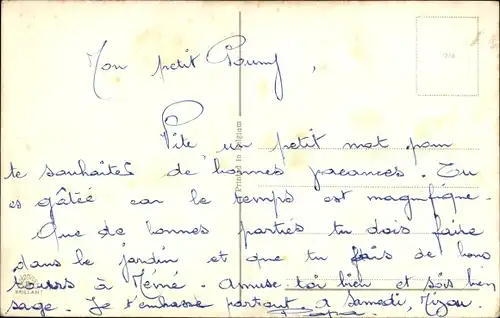 Mon petit Poumf,
Vite un petit mot pour
te souhaiter de bonnes vacances. Tu
es gâtée car le temps est magnifique.
Que de bonnes parties tu dois faire
dans le jardin et que tu fais de bons
tours à Mémé. Amuse-toi bien et sois bien
sage. Je t'embrasse partout. a Samedi,
Papa
Printed in Belgium
BRILLANT